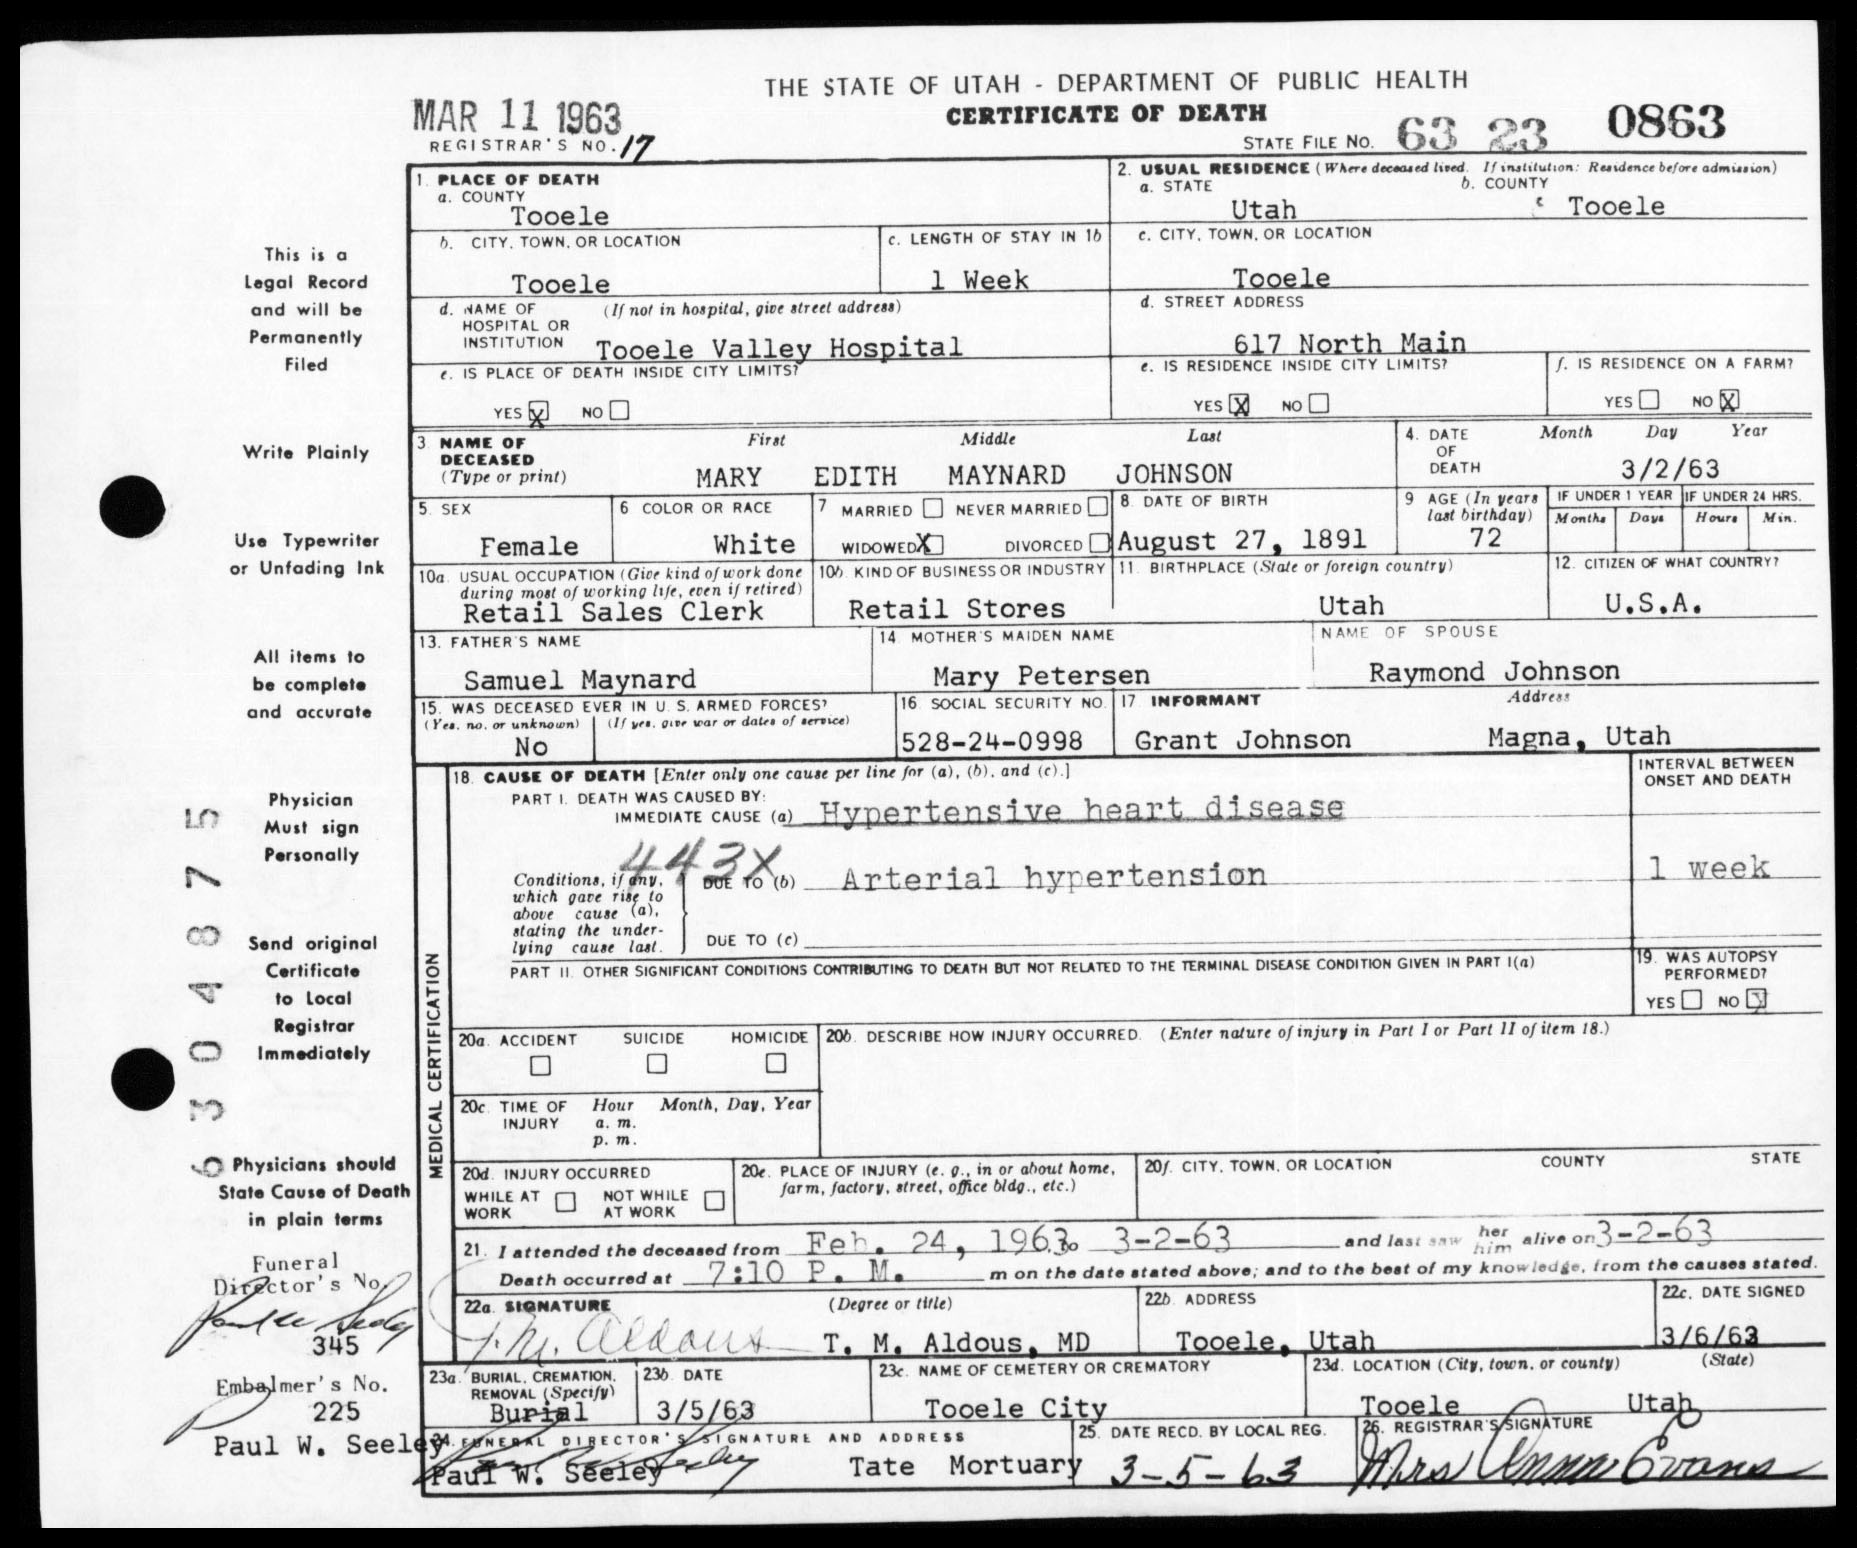 THE STATE OF UTAH - DEPARTMENT OF PUBLIC HEALTH
MAR 11 1963
CERTIFICATE OF DEATH
REGISTRAR'S NO. 17
STATE FILE NO. 63 23 0863
1. PLACE OF DEATH
a. COUNTY
Tooele
2. USUAL RESIDENCE (Where deceased lived. If institution: Residence before admission)
a. STATE b. COUNTY
Utah Tooele
b. CITY, TOWN, OR LOCATION
Tooele
c. LENGTH OF STAY IN 1b
1 Week
c. CITY, TOWN, OR LOCATION
Tooele
d. NAME OF HOSPITAL OR INSTITUTION (If not in hospital, give street address)
Tooele Valley Hospital
d. STREET ADDRESS
617 North Main
e. IS PLACE OF DEATH INSIDE CITY LIMITS?
YES X NO
e. IS RESIDENCE INSIDE CITY LIMITS?
YES X NO
f. IS RESIDENCE ON A FARM?
YES NO X
3. NAME OF DECEASED (Type or print)
First Middle Last
MARY EDITH MAYNARD JOHNSON
4. DATE OF DEATH
Month Day Year
3/2/63
5. SEX
Female
6 COLOR OR RACE
White
7 MARRIED NEVER MARRIED
WIDOWED X DIVORCED
8. DATE OF BIRTH
August 27, 1891
9 AGE (In years last birthday)
72
IF UNDER 1 YEAR
Months Days
IF UNDER 24 HRS.
Hours Min.
10a. USUAL OCCUPATION (Give kind of work done during most of working life, even if retired)
Retail Sales Clerk
10b. KIND OF BUSINESS OR INDUSTRY
Retail Stores
11. BIRTHPLACE (State or foreign country)
Utah
12. CITIZEN OF WHAT COUNTRY?
U.S.A.
13. FATHER'S NAME
Samuel Maynard
14. MOTHER'S MAIDEN NAME
Mary Petersen
NAME OF SPOUSE
Raymond Johnson
15. WAS DECEASED EVER IN U. S. ARMED FORCES?
(Yes, no, or unknown) (If yes, give war or dates of service)
No
16. SOCIAL SECURITY NO.
528-24-0998
17 INFORMANT Address
Grant Johnson Magna, Utah
MEDICAL CERTIFICATION
18. CAUSE OF DEATH [Enter only one cause per line for (a), (b), and (c).]
PART I. DEATH WAS CAUSED BY:
IMMEDIATE CAUSE (a) Hypertensive heart disease
INTERVAL BETWEEN ONSET AND DEATH
443X
Conditions, if any, which gave rise to above cause (a), stating the underlying cause last.
DUE TO (b) Arterial hypertension
1 week
DUE TO (c)
PART II. OTHER SIGNIFICANT CONDITIONS CONTRIBUTING TO DEATH BUT NOT RELATED TO THE TERMINAL DISEASE CONDITION GIVEN IN PART I(a)
19. WAS AUTOPSY PERFORMED?
YES NO X
20a. ACCIDENT SUICIDE HOMICIDE
20b. DESCRIBE HOW INJURY OCCURRED. (Enter nature of injury in Part I or Part II of item 18.)
20c. TIME OF INJURY Hour Month, Day, Year
a. m.
p. m.
20d. INJURY OCCURRED
WHILE AT WORK NOT WHILE AT WORK
20e. PLACE OF INJURY (e. g., in or about home, farm, factory, street, office bldg., etc.)
20f. CITY, TOWN, OR LOCATION COUNTY STATE
21. I attended the deceased from Feb. 24, 1963 to 3-2-63 and last saw her him alive on 3-2-63
Death occurred at 7:10 P. M. m on the date stated above; and to the best of my knowledge, from the causes stated.
22a. SIGNATURE (Degree or title)
T. M. Aldous T. M. Aldous, MD
22b. ADDRESS
Tooele, Utah
22c. DATE SIGNED
3/6/63
23a. BURIAL, CREMATION, REMOVAL (Specify)
Burial
23b. DATE
3/5/63
23c. NAME OF CEMETERY OR CREMATORY
Tooele City
23d. LOCATION (City, town, or county) (State)
Tooele Utah
24. FUNERAL DIRECTOR'S SIGNATURE AND ADDRESS
Paul W. Seeley Tate Mortuary
25. DATE RECD. BY LOCAL REG.
3-5-63
26. REGISTRAR'S SIGNATURE
Mrs Anna Evans
This is a
Legal Record
and will be
Permanently
Filed
Write Plainly
Use Typewriter
or Unfading Ink
All items to
be complete
and accurate
Physician
Must sign
Personally
Send original
Certificate
to Local
Registrar
Immediately
Physicians should
State Cause of Death
in plain terms
6304875
Funeral
Director's No.
Paul W Seeley
345
Embalmer's No.
225
Paul W. Seeley